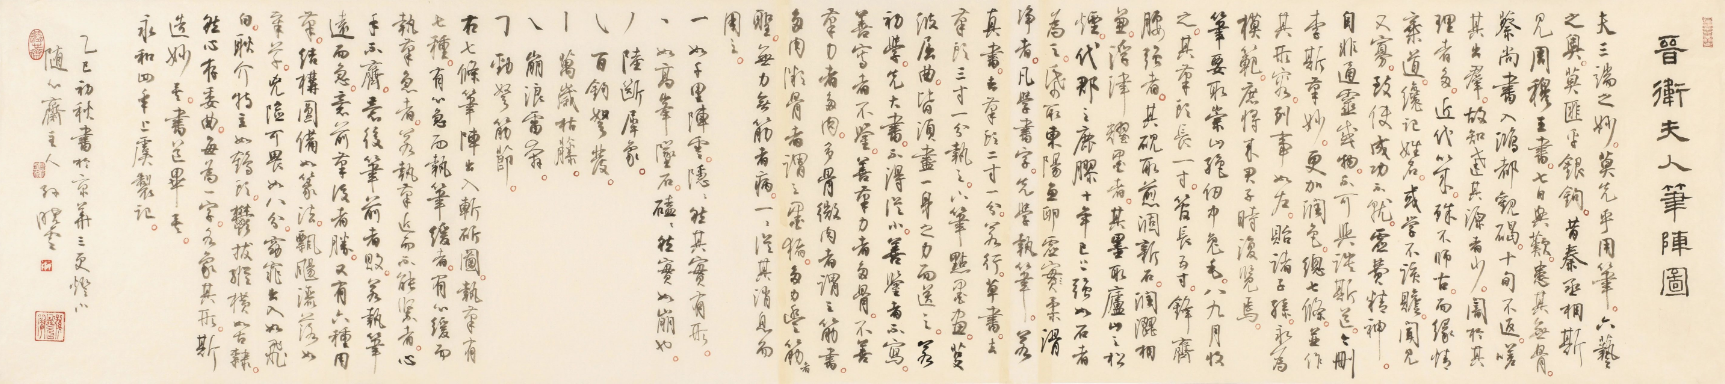 晉衛夫人筆陣圖
夫三端之妙莫先乎用筆六藝
之奧莫匪乎銀鉤昔秦丞相斯
見周穆王書七日興歎患其無骨
蔡尚書入鴻都觀碣十旬不返嗟
其出羣故知達其源者少闇於其
理者多近代以來殊不師古而緣情
棄道纔記姓名或學不該贍聞見
又寡致使成功不就虛費精神
自非通靈感物不可與談斯道今刪
李斯筆妙更加潤色總七條並作
其形容列事如左貽諸子孫永為
模範庶將來君子時復覽焉
筆要取崇山絕仞中兔毛八九月收
之其筆頭長一寸管長五寸鋒齊
腰強者其硯取煎涸新石潤澀相
兼浮津耀墨者其墨取廬山之松
煙代郡之鹿膠十年已上強如石者
為之紙取東陽魚卵虛實柔滑
淨者凡學書字先學執筆若
真書去筆頭二寸一分若行草書去
筆頭三寸一分執之下筆點墨畫芟
波屈曲皆須盡一身之力而送之若
初學先大書不得從小善鑒者不寫
善寫者不鑒善筆力者多骨不善
筆力者多肉多骨微肉者謂之筋書
多肉微骨者謂之墨豬多力豐筋者
聖無力無筋者病一一從其消息而
用之
一 如千里陣雲隱隱然其實有形
丶 如高峯墜石磕磕然實如崩也
丿 陸斷犀象
百鈞弩發
丨 萬歲枯藤
崩浪雷奔
勁弩筋節
右七條筆陣出入斬斫圖執筆有
七種有心急而執筆緩者有心緩而
執筆急者若執筆近而不能緊者心
手不齊意後筆前者敗若執筆
遠而急意前筆後者勝又有六種用
筆結構圓備如篆法飄颺灑落如
章草兇險可畏如八分窈窕出入如飛
白耿介特立如鶴頭鬱拔縱橫如古隸
然心存委曲每為一字各象其形斯
造妙矣書道畢矣
永和四年上虞製記
乙巳初秋書於京華三更燈火
隨心齋主人